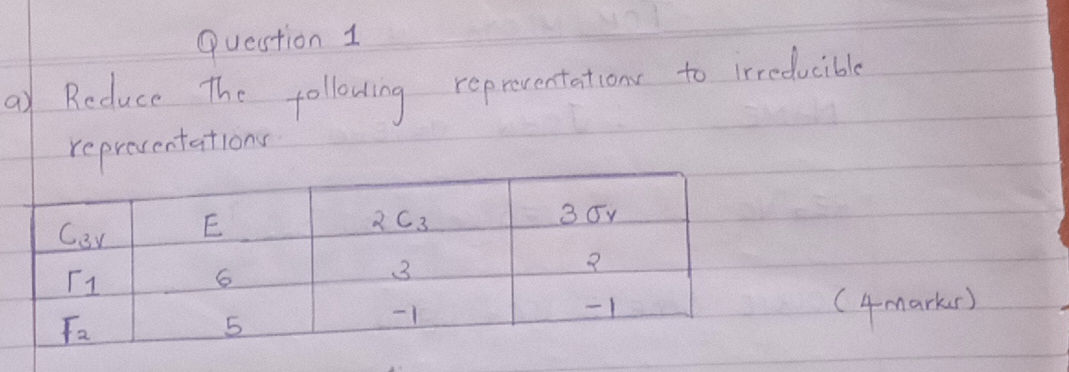 Question 1
a) Reduce the following representations to irreducible
representations.
C3v E 2C3 3σv
Γ1 6 3 2
Γ2 5 -1 -1
(4 marks)